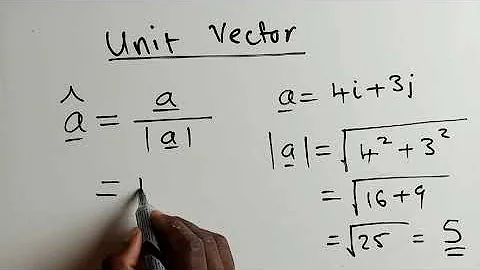 Unit Vector
â = a / |a|
=
a = 4i + 3j
|a| = √4² + 3²
= √16 + 9
= √25 = 5